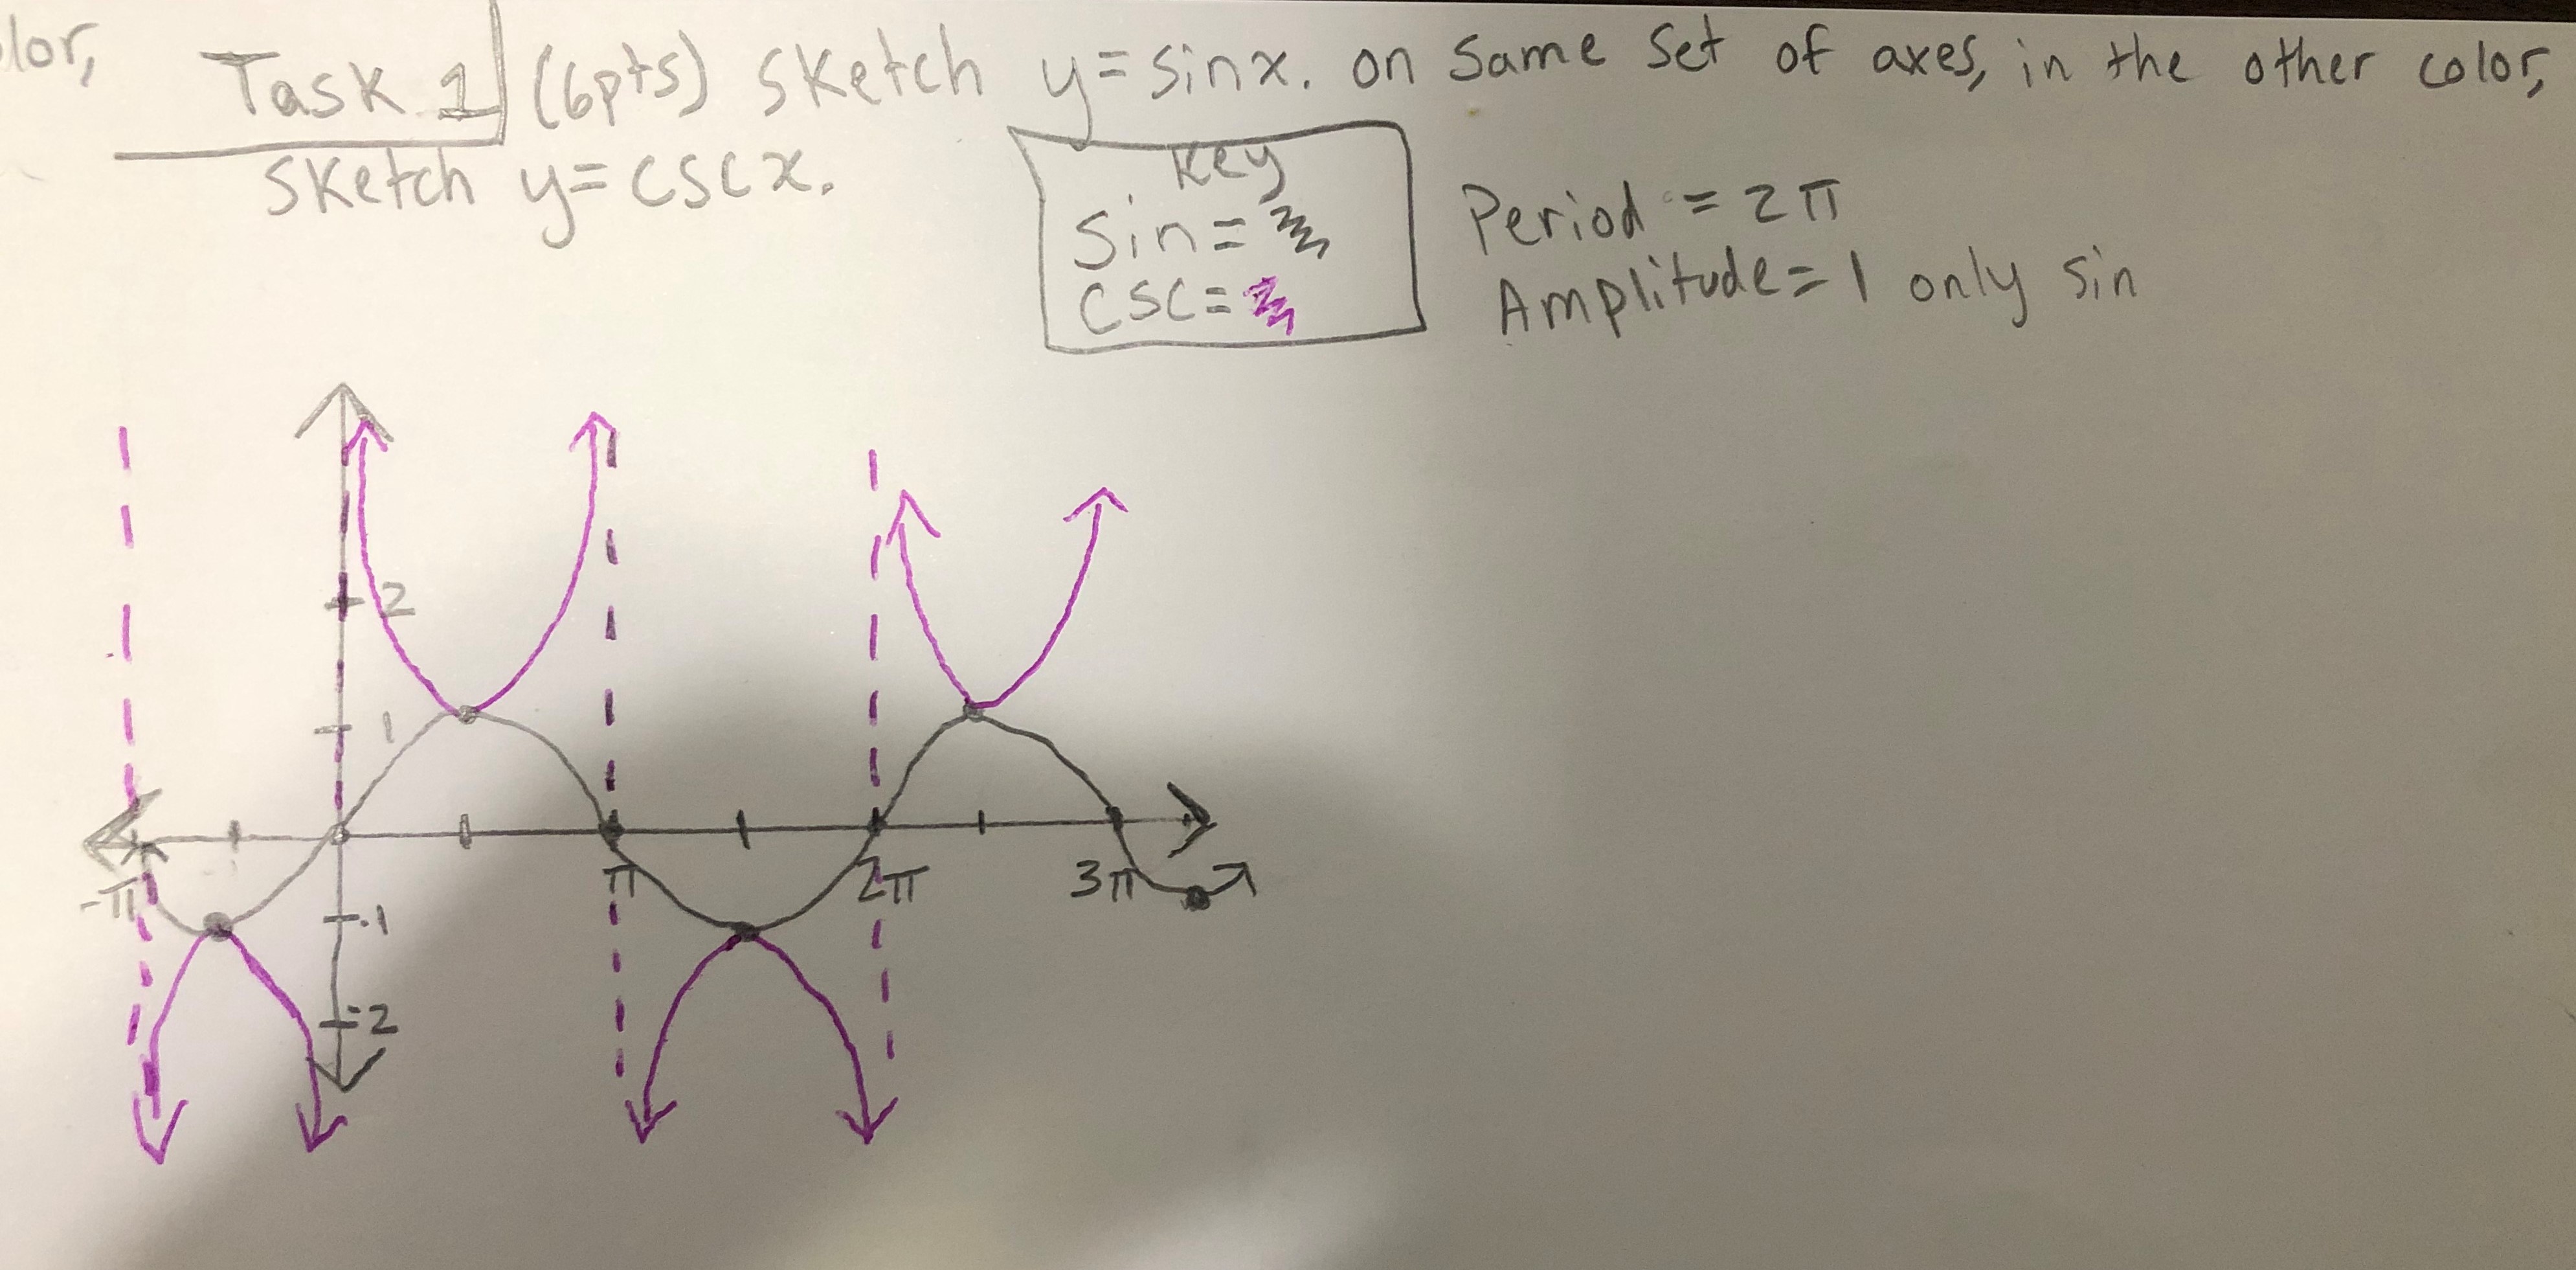 lor,
Task 1 (6pts) Sketch y=sinx. on same set of axes, in the other color,
sketch y=cscx.
Key
Sin=
csc=
Period = 2π
Amplitude=1 only sin
2
1
-π
π
2π
3π
-1
-2